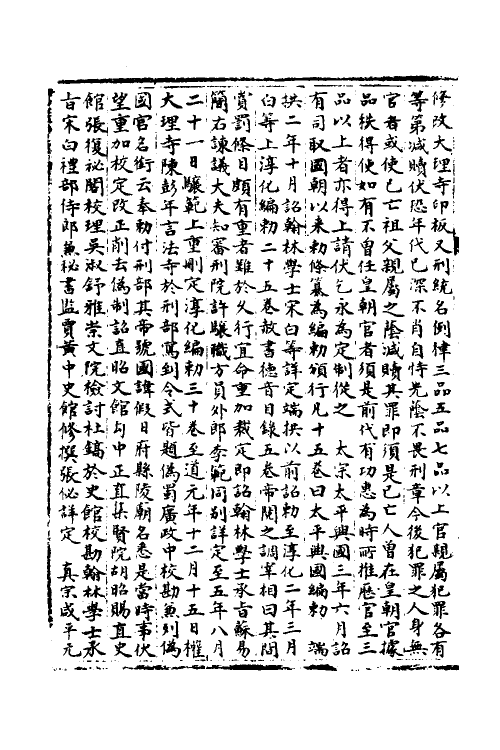 修改大理寺印板又刑統名例律三品五品七品以上官親屬犯罪各有
等第減贖伏恐年代已深不肖自恃先蔭不畏刑章今後犯罪之人身無
官者或使已亡祖父親屬之蔭減贖其罪即須是已亡人曾在皇朝官據
品秩得使如有不曾任皇朝官者須是前代有功惠為時所推歷官至三
品以上者亦得上請伏乞永為定制從之　太宗太平興國三年六月詔
有司取國朝以來勅條纂為編勅頒行凡十五卷曰太平興國編勅　端
拱二年十月詔翰林學士宋白等詳定端拱以前詔勅至淳化二年三月
白等上淳化編勅二十五卷赦書德音目錄五卷帝閱之謂宰相曰其間
賞罰條目頗有重者難於久行宜命重加裁定即詔翰林學士承旨蘇易
簡右諫議大夫知審刑院許驤職方員外郎李範同別詳定至五年八月
二十一日驤範上重刪定淳化編勅三十卷至道元年十二月十五日權
大理寺陳彭年言法寺於刑部寫到令式皆題偽蜀廣政中校勘兼列偽
國官名銜云奉勅付刑部其帝號國諱假日府縣陵廟名悉是當時事伏
望重加校定改正削去偽制詔直昭文館勾中正直集賢院胡昭賜直史
館張復祕閣校理吳淑舒雅崇文院檢討杜鎬於史館校勘翰林學士承
旨宋白禮部侍郎兼祕書監賈黃中史館修撰張佖詳定　真宗咸平元